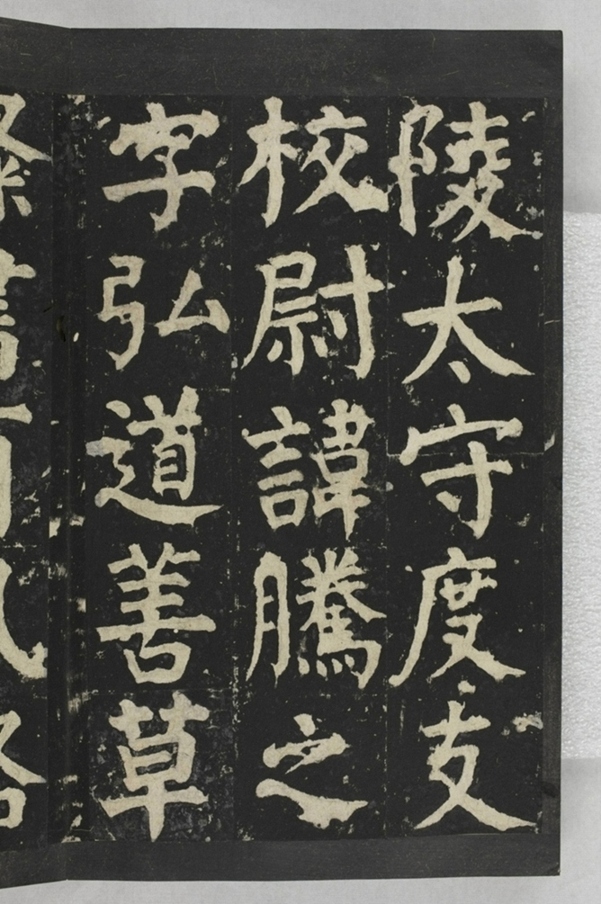 陵太守度支
校尉諱騰之
字弘道善草